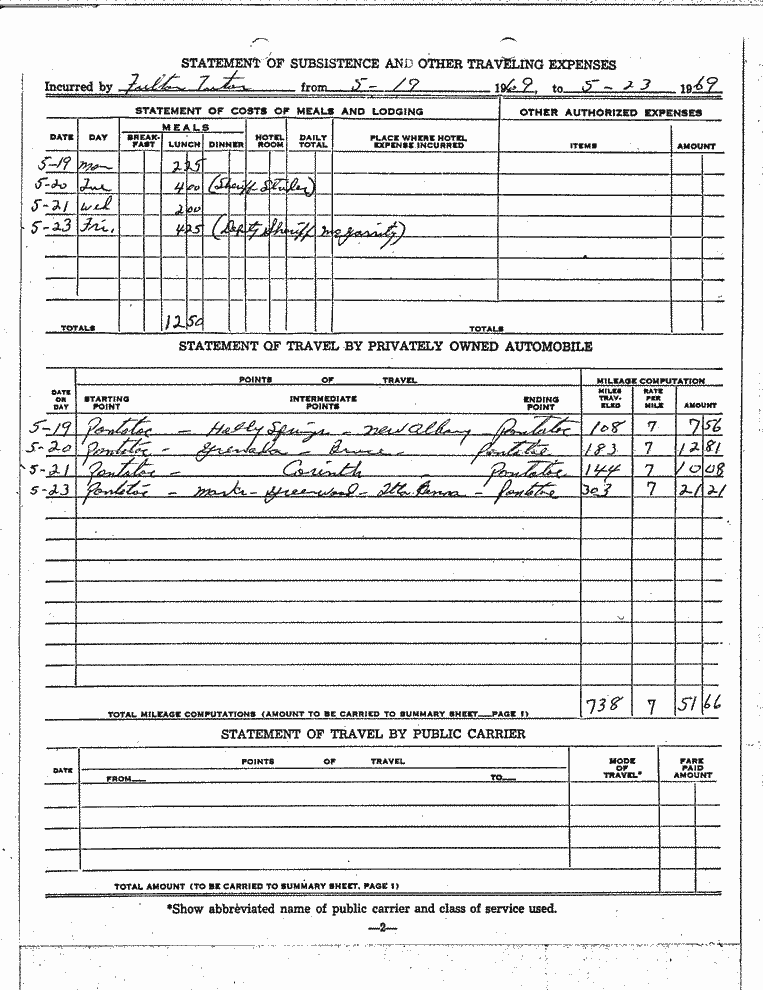 STATEMENT OF SUBSISTENCE AND OTHER TRAVELING EXPENSES
Incurred by Fulton Tutor from 5-19 1969, to 5-23 1969
STATEMENT OF COSTS OF MEALS AND LODGING OTHER AUTHORIZED EXPENSES
DATE DAY MEALS BREAK-FAST LUNCH DINNER HOTEL ROOM DAILY TOTAL PLACE WHERE HOTEL EXPENSE INCURRED ITEMS AMOUNT
5-19 Mon 2 25
5-20 Tue 4 00 (Sheriff
5-21 Wed 2 00
5-23 Fri. 4 25 (Deputy Sheriff McGarrity)
TOTALS 12 50 TOTALS
STATEMENT OF TRAVEL BY PRIVATELY OWNED AUTOMOBILE
DATE OR DAY POINTS OF TRAVEL MILEAGE COMPUTATION
STARTING POINT INTERMEDIATE POINTS ENDING POINT MILES TRAV-ELED RATE PER MILE AMOUNT
5-19 Pontotoc - Holly Springs - New Albany - Pontotoc 108 7 7 56
5-20 Pontotoc - Grenada - Bruce - Pontotoc 183 7 12 81
5-21 Pontotoc - Corinth - Pontotoc 144 7 10 08
5-23 Pontotoc - Marks - Greenwood - Itta Benna - Pontotoc 303 7 21 21
TOTAL MILEAGE COMPUTATIONS (AMOUNT TO BE CARRIED TO SUMMARY SHEET—PAGE 1) 738 7 51 66
STATEMENT OF TRAVEL BY PUBLIC CARRIER
DATE POINTS OF TRAVEL MODE OF TRAVEL* FARE PAID AMOUNT
FROM— TO—
TOTAL AMOUNT (TO BE CARRIED TO SUMMARY SHEET, PAGE 1)
*Show abbreviated name of public carrier and class of service used.
—2—